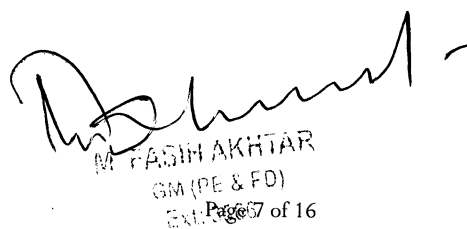 M FASIH AKHTAR
GM (PE & FD)
Page 7 of 16